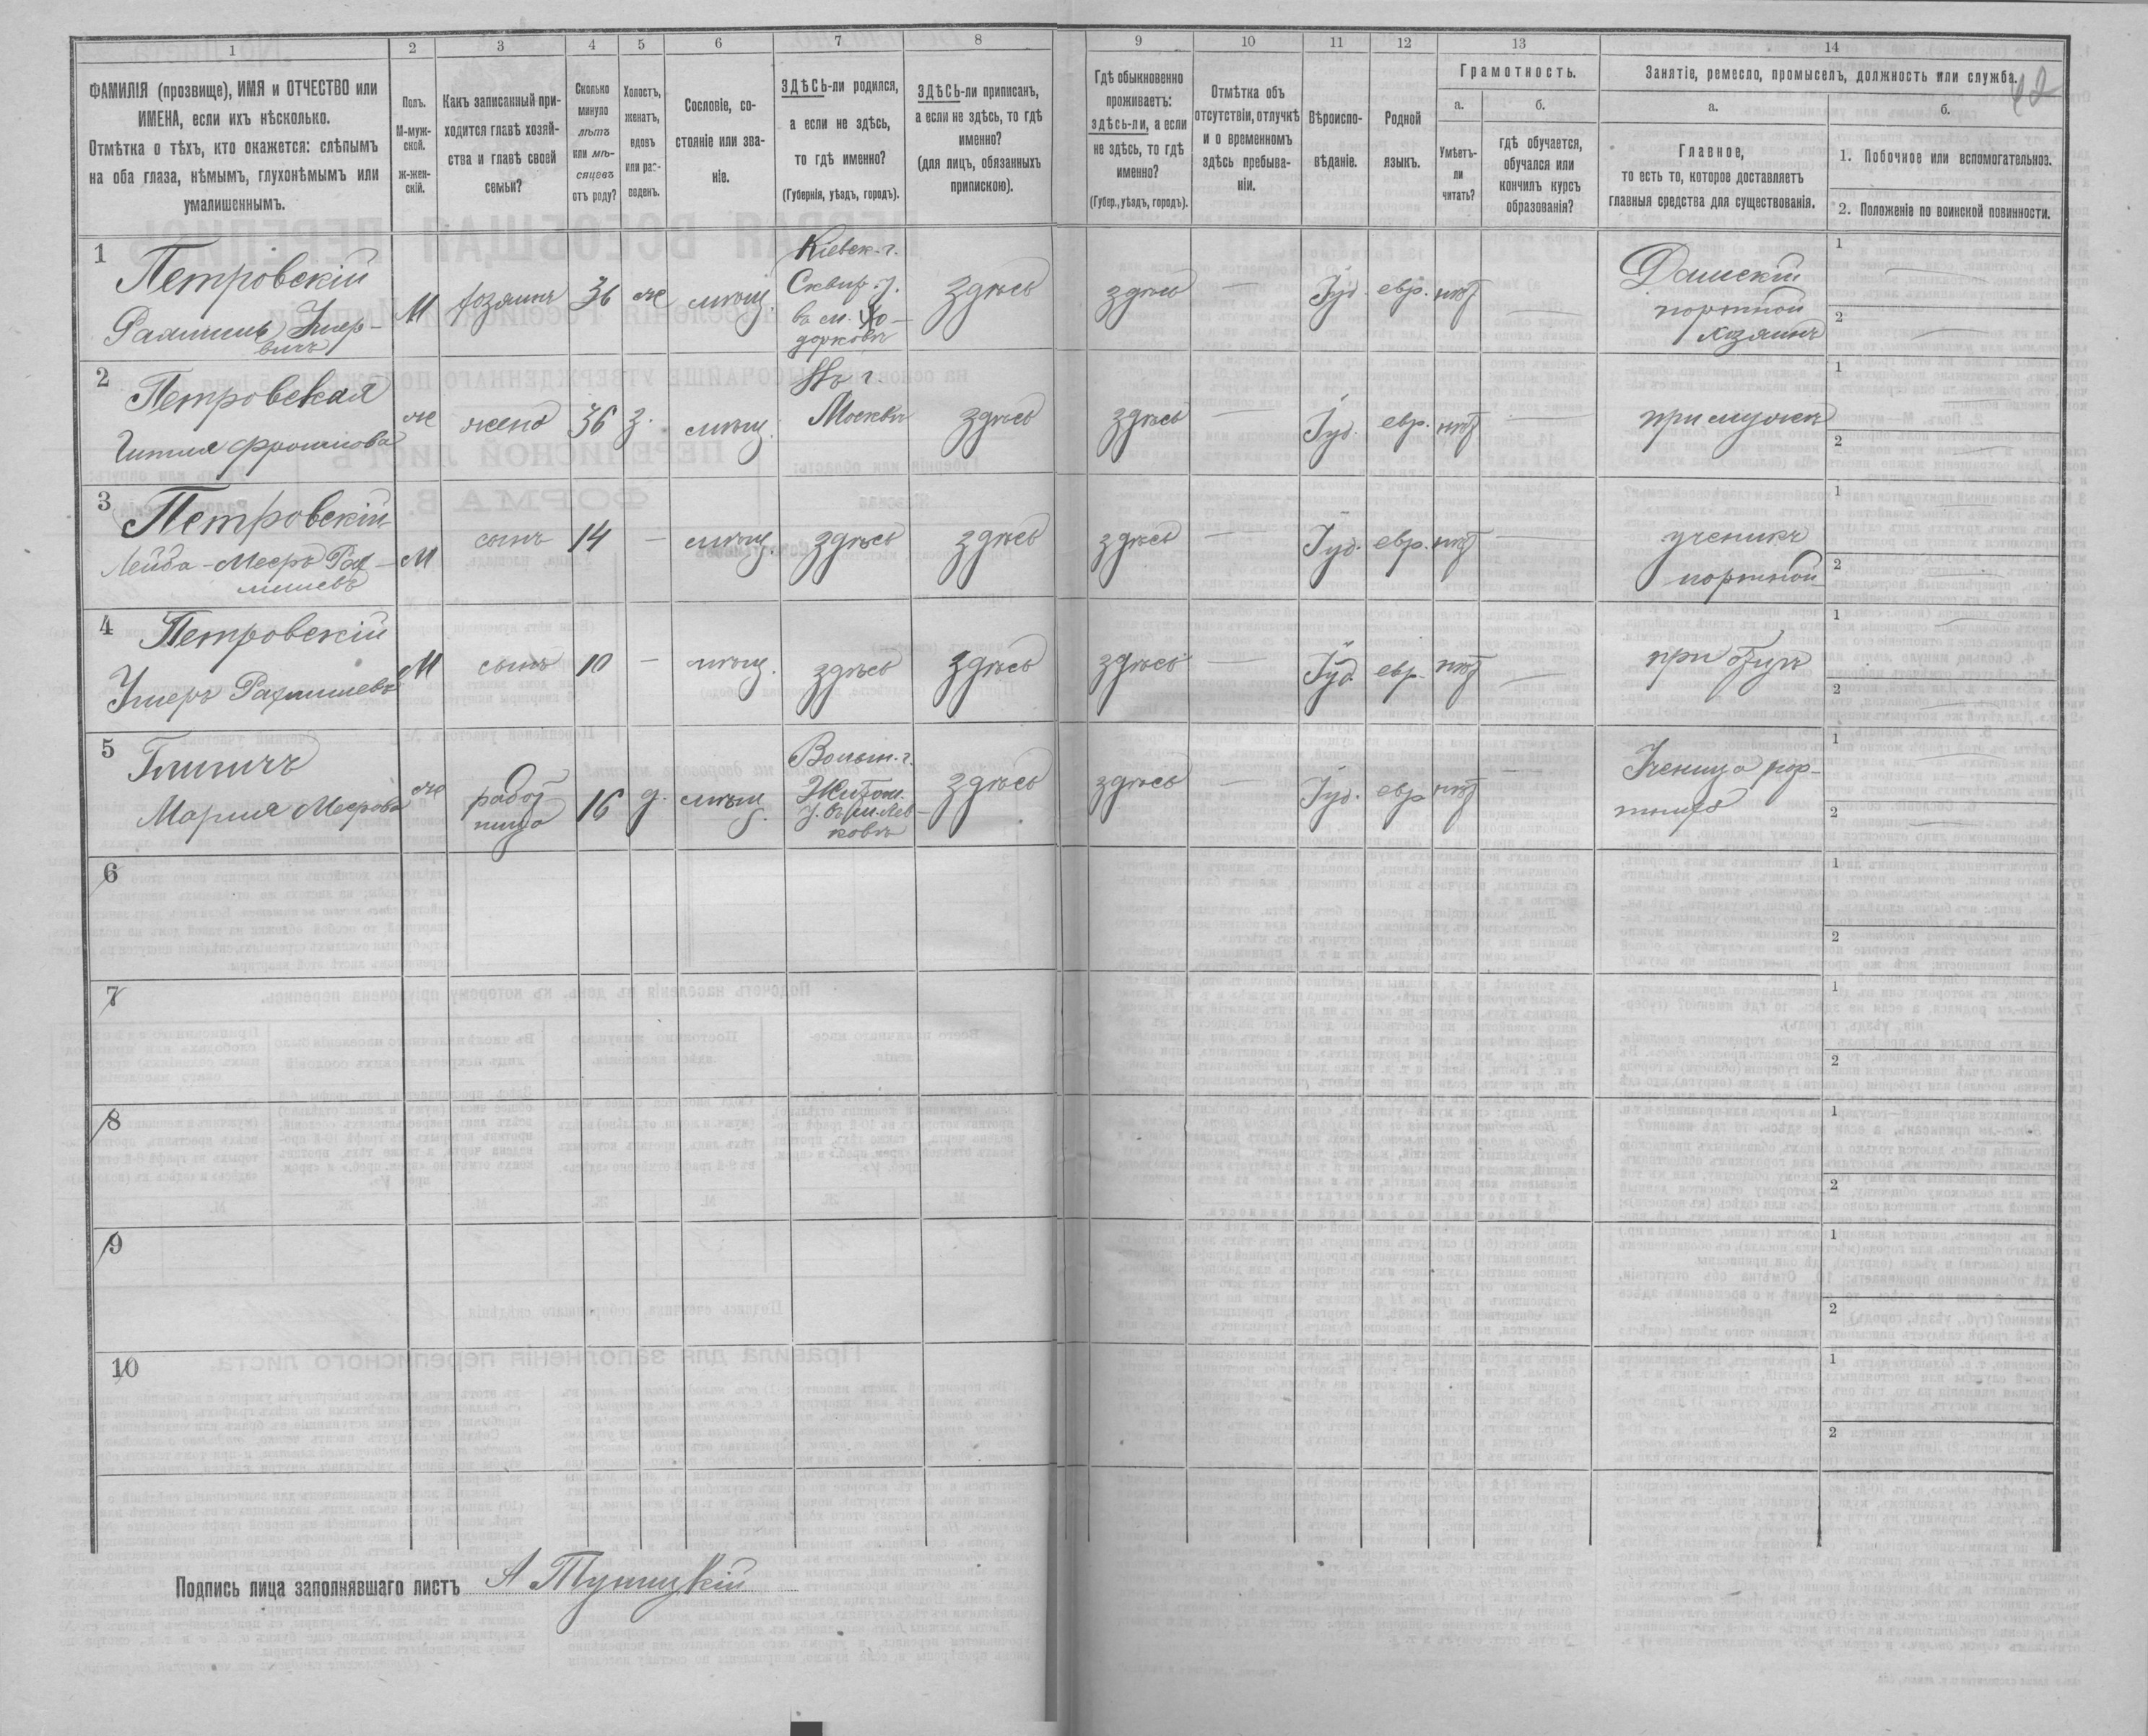 1 2 3 4 5 6 7 8 9 10 11 12 13 14
ФАМИЛІЯ (прозвище), ИМЯ и ОТЧЕСТВО или
ИМЕНА, если ихъ нѣсколько.
Отмѣтка о тѣхъ, кто окажется: слѣпымъ
на оба глаза, нѣмымъ, глухонѣмымъ или
умалишеннымъ.
Полъ.
М-муж-
ской.
Ж-жен-
скій.
Какъ записанный при-
ходится главѣ хозяй-
ства и главѣ своей
семьи?
Сколько
минуло
лѣтъ
или мѣ-
сяцевъ
отъ роду?
Холостъ,
женатъ,
вдовъ
или раз-
веденъ.
Сословіе, со-
стояніе или зва-
ніе.
ЗДѢСЬ-ли родился,
а если не здѣсь,
то гдѣ именно?
(Губернія, уѣздъ, городъ).
ЗДѢСЬ-ли приписанъ,
а если не здѣсь, то гдѣ
именно?
(для лицъ, обязанныхъ
припискою).
Гдѣ обыкновенно
проживаетъ:
здѣсь-ли, а если
не здѣсь, то гдѣ
именно?
(Губер., уѣздъ, городъ).
Отмѣтка объ
отсутствіи, отлучкѣ
и о временномъ
здѣсь пребыва-
ніи.
Вѣроиспо-
вѣданіе.
Родной
языкъ.
Грамотность.
а.
Умѣетъ-
ли
читать?
б.
гдѣ обучается,
обучался или
кончилъ курсъ
образованія?
Занятіе, ремесло, промыселъ, должность или служба.
а.
Главное,
то есть то, которое доставляетъ
главныя средства для существованія.
б.
1. Побочное или вспомогательное.
2. Положеніе по воинской повинности.
1
Петровскій
М хозяинъ 36 же мѣщ.
Кіевск. г.
Сквир. у.
в м. Хо-
дорковъ
здѣсь здѣсь — Іуд. евр. нѣт —
Дамскій
портной
хозяинъ
1 —
2 —
2
Петровская
же жена 36 з. мѣщ.
Въ г.
Москвѣ
здѣсь здѣсь — Іуд. евр. нѣт —
при мужѣ
1
2
3
Петровскій
Лейба-Мееръ Рах-
милевъ
М сынъ 14 — мѣщ. здѣсь здѣсь здѣсь — Іуд. евр. нѣт —
ученикъ
портной
1
2 —
4
Петровскій
М сынъ 10 — мѣщ. здѣсь здѣсь здѣсь — Іуд. евр. нѣт —
при отцѣ
1 —
2 —
5
Мария Меерова
же
работ
ница
16 д. мѣщ.
Волын. г.
Житом.
у. въ м. Лев
ковѣ
здѣсь здѣсь — Іуд. евр нѣт —
Ученица пор-
тниха
1 —
2 —
6
1
2
7
1
2
8
1
2
9
1
2
10
1
2
Подпись лица заполнявшаго листъ